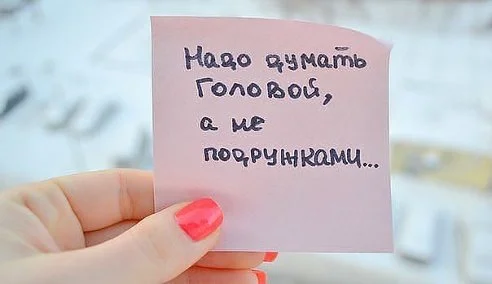 Надо думать
головой,
а не
подружками...